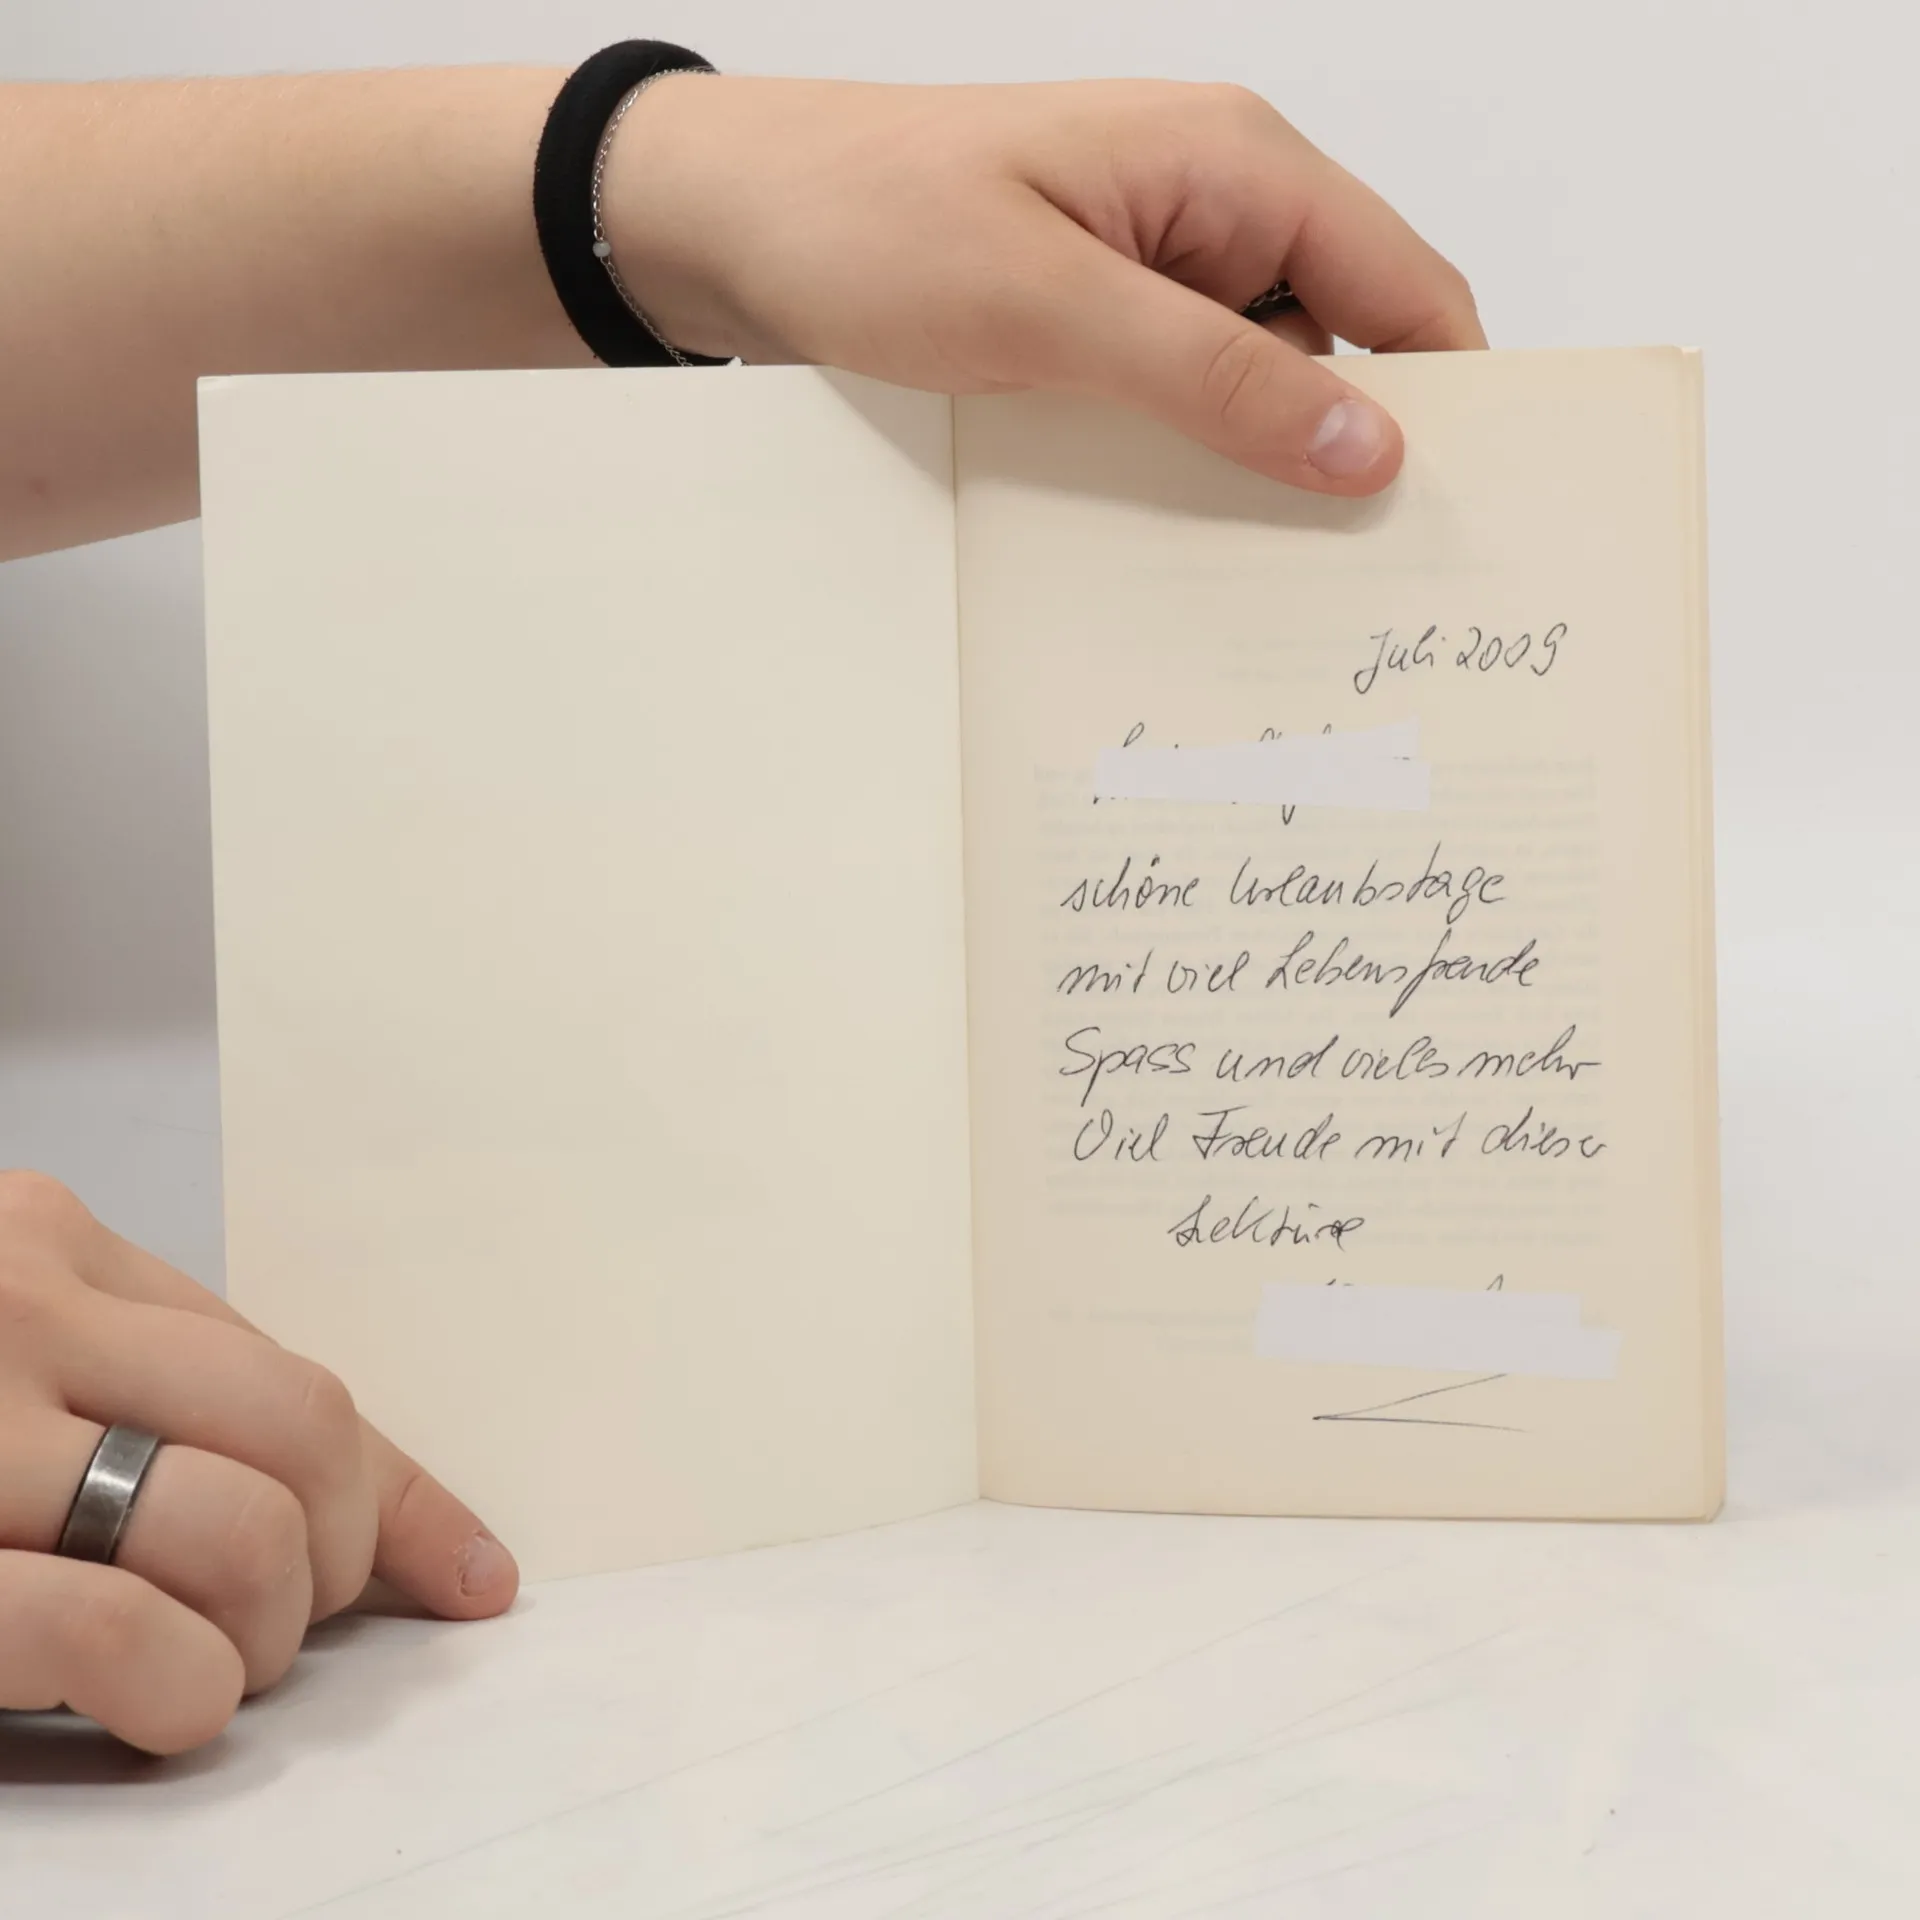 Juli 2009
schöne Urlaubstage
mit viel Lebensfreude
Spass und vieles mehr
Viel Freude mit dieser
Lektüre